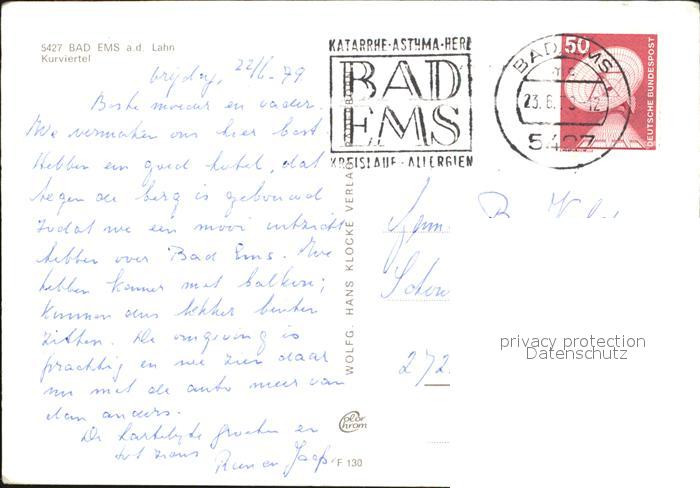 5427 BAD EMS a.d. Lahn
Kurviertel
vrijdag, 22/6-79
Beste moeder en vader.
We vermaken ons hier best
Hebben een goed hotel, dat
tegen de berg is gebouwd
zodat we een mooi uitzicht
hebben over Bad Ems. We
hebben kamer met balkon;
kunnen dus lekker buiten
zitten. De omgeving is
prachtig en we zien daar
nu met de auto meer van
dan anders.
De hartelijke groeten en
tot ziens
en Jaap.
KATARRHE-ASTHMA-HERZ
BAD
EMS
KREISLAUF-ALLERGIEN
BAD EMS
23.6.
12
5427
50
DEUTSCHE BUNDESPOST
WOLFG. HANS KLOCKE VERLAG
272
privacy protection
Datenschutz
color
chrom
F 130